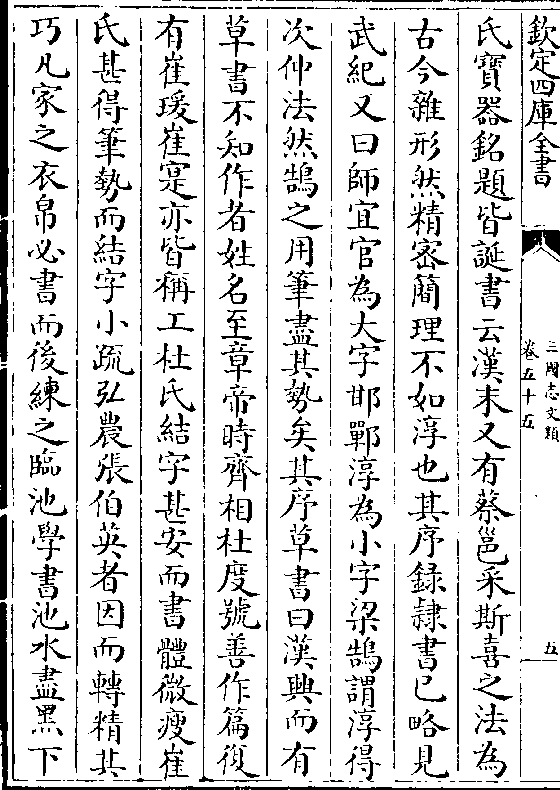 欽定四庫全書
三國志文類
卷五十五
五
氏寶器銘題皆誕書云漢末又有蔡邕采斯喜之法為
古今雜形然精密簡理不如淳也其序録隷書已略見
武紀又曰師宜官為大字邯鄲淳為小字梁鵠謂淳得
次仲法然鵠之用筆盡其勢矣其序草書曰漢興而有
草書不知作者姓名至章帝時齊相杜度號善作篇後
有崔瑗崔寔亦皆稱工杜氏結字甚安而書體微瘦崔
氏甚得筆勢而結字小疏弘農張伯英者因而轉精其
巧凡家之衣帛必書而後練之臨池學書池水盡黑下